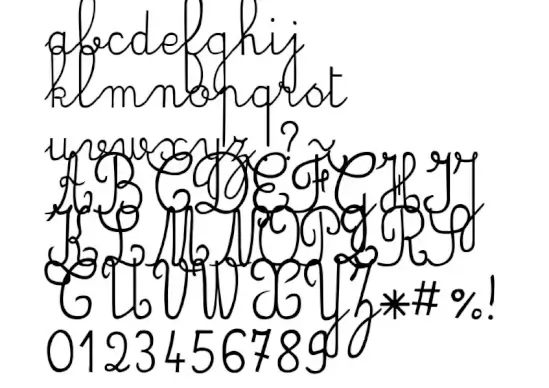 abcdefghij
klmnopqrst
uvwxyz ? ~
ABCDEFGHIJ
KLMNOPQRS
TUVWXYZ*#%!
0123456789